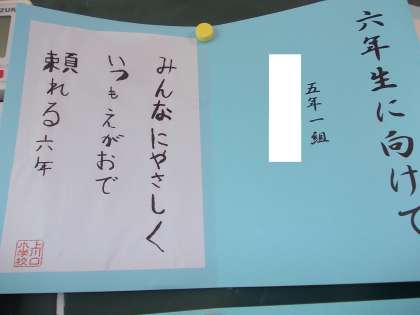 六年生に向けて
五年一組
みんなにやさしく
いつもえがおで
頼れる六年
上川口
小学校